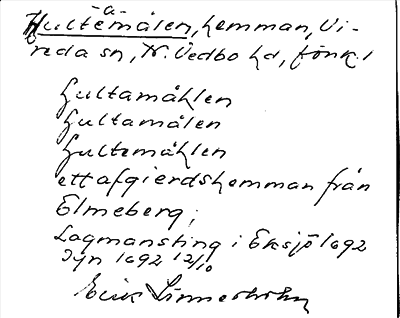 -a-
Hultemålen, hemman, Vi-
reda sn, N. Vedbo hd, Jönk. l
Hultamåhlen
Hultamålen
Hultemåhlen
ett afgierdshemman från
Elmeberg;
Lagmansting i Eksjö 1692
Jyn 1692 12/10
Erik Linnerholm